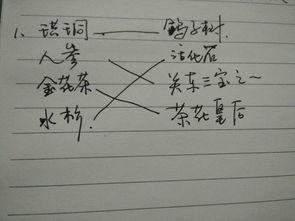 1、珙桐 鸽子树
人参 活化石
金花茶 关东三宝之一
水杉 茶花皇后